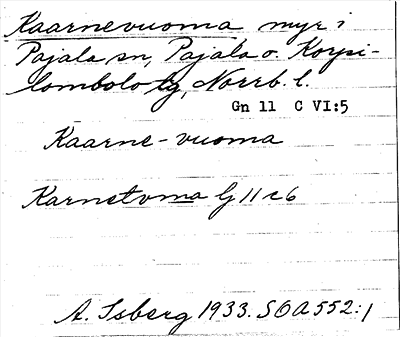 Kaarnevuoma myr i
Pajala sn, Pajala o. Korpi-
lombolo tg, Norrb. l.
Gn 11 C VI:5
Kaarne-vuoma
Karnetvma G 11 c 6
A. Isberg 1933. SOA 552:1